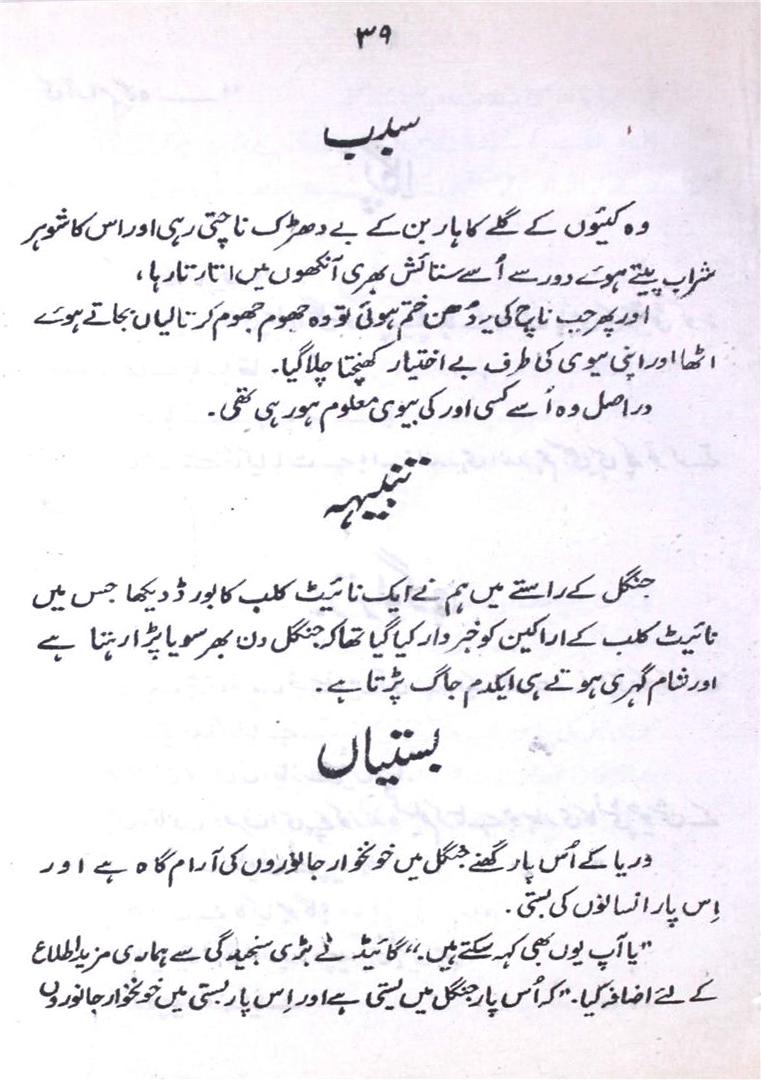 ۳۹
سبب
وہ کیئوں کے گلے کا ہار بن کے بے دھڑک ناچتی رہی اور اس کا شوہر
شراب پیتے ہوئے دور سے اُسے ستائش بھری آنکھوں میں اتارتا رہا،
اور پھر جب ناچ کی یہ دُھن ختم ہوئی تو وہ جھوم جھوم کر تالیاں بجاتے ہوئے
اٹھا اور اپنی بیوی کی طرف بے اختیار کھنچتا چلا گیا۔
دراصل وہ اُسے کسی اور کی بیوی معلوم ہو رہی تھی۔
تنبیہہ
جنگل کے راستے میں ہم نے ایک نائیٹ کلب کا بورڈ دیکھا جس میں
نائیٹ کلب کے اراکین کو خبردار کیا گیا تھا کہ جنگل دن بھر سویا پڑا رہتا ہے
اور شام گہری ہوتے ہی ایکدم جاگ پڑتا ہے۔
بستیاں
دریا کے اُس پار گھنے جنگل میں خونخوار جانوروں کی آرام گاہ ہے اور
اِس پار انسانوں کی بستی۔
"یا آپ یوں بھی کہہ سکتے ہیں۔" گائیڈ نے بڑی سنجیدگی سے ہماری مزید اطلاع
کے لئے اضافہ کیا۔ "کہ اُس پار جنگل میں بستی ہے اور اِس پار بستی میں خونخوار جانوروں